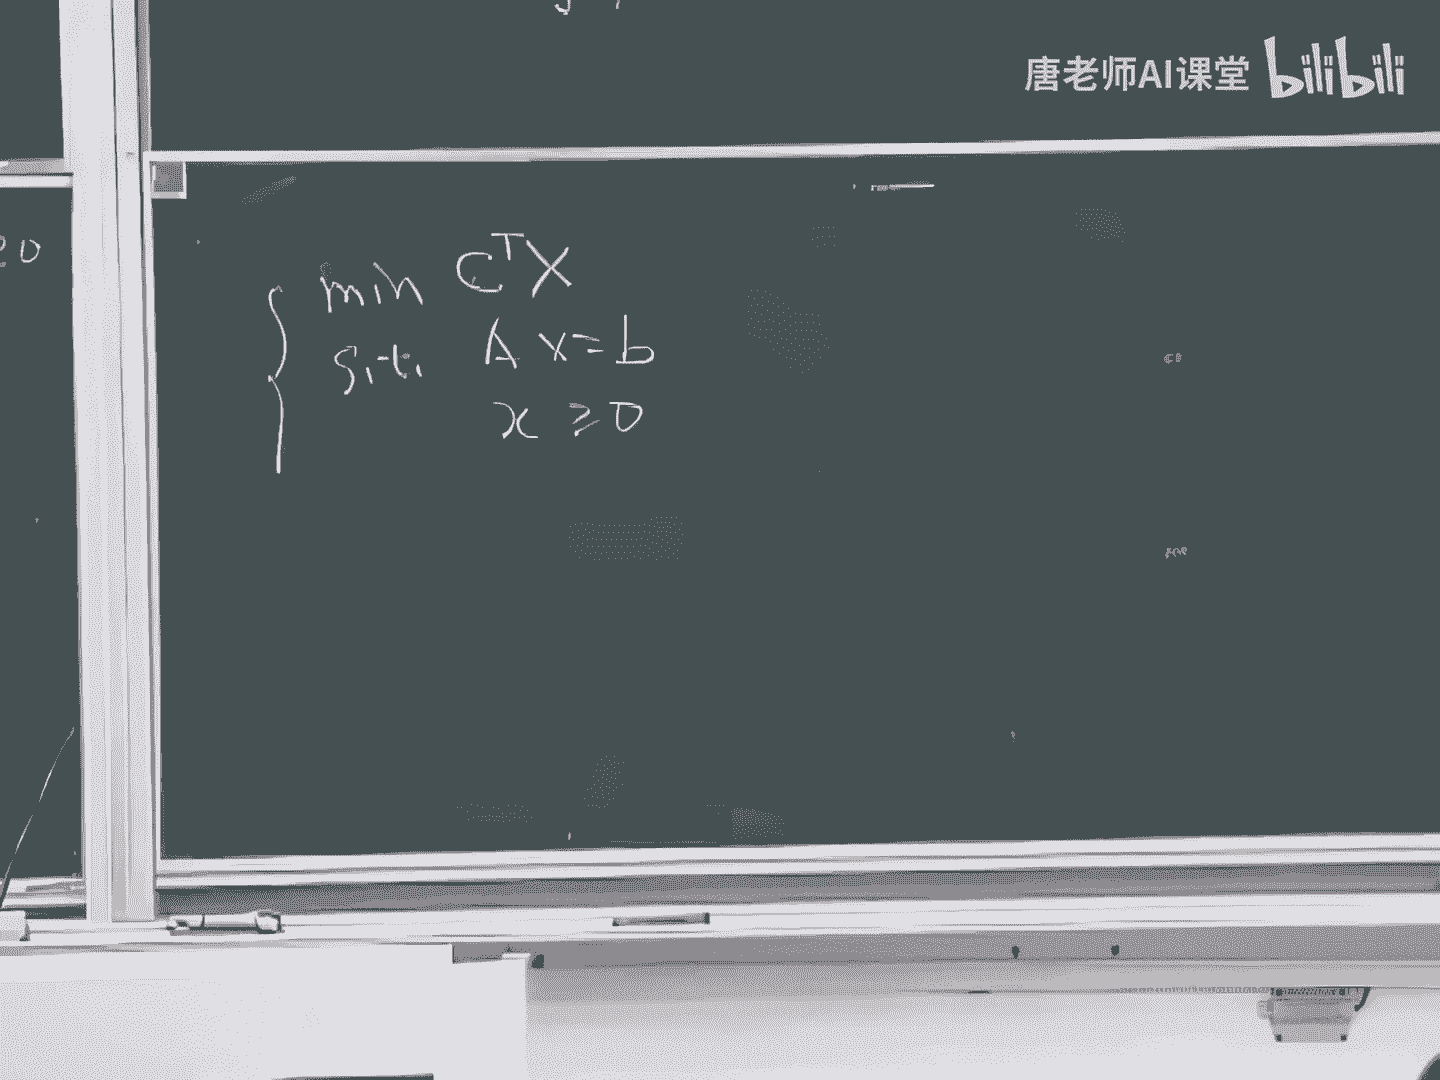 唐老师AI课堂 bilibili
≥0
min CᵀX
s.t. Ax=b
x ≥0